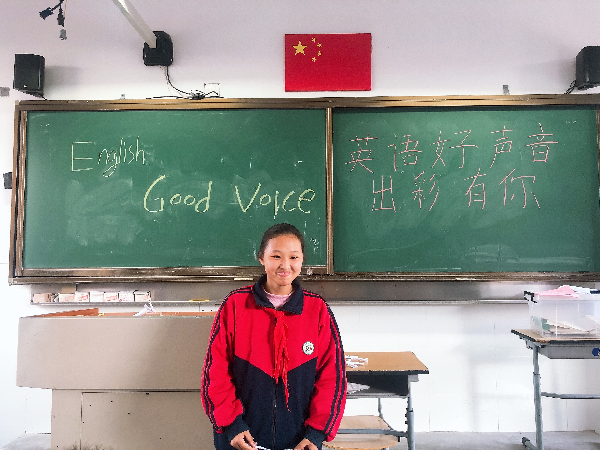 English
Good Voice
英语好声音
出彩有你